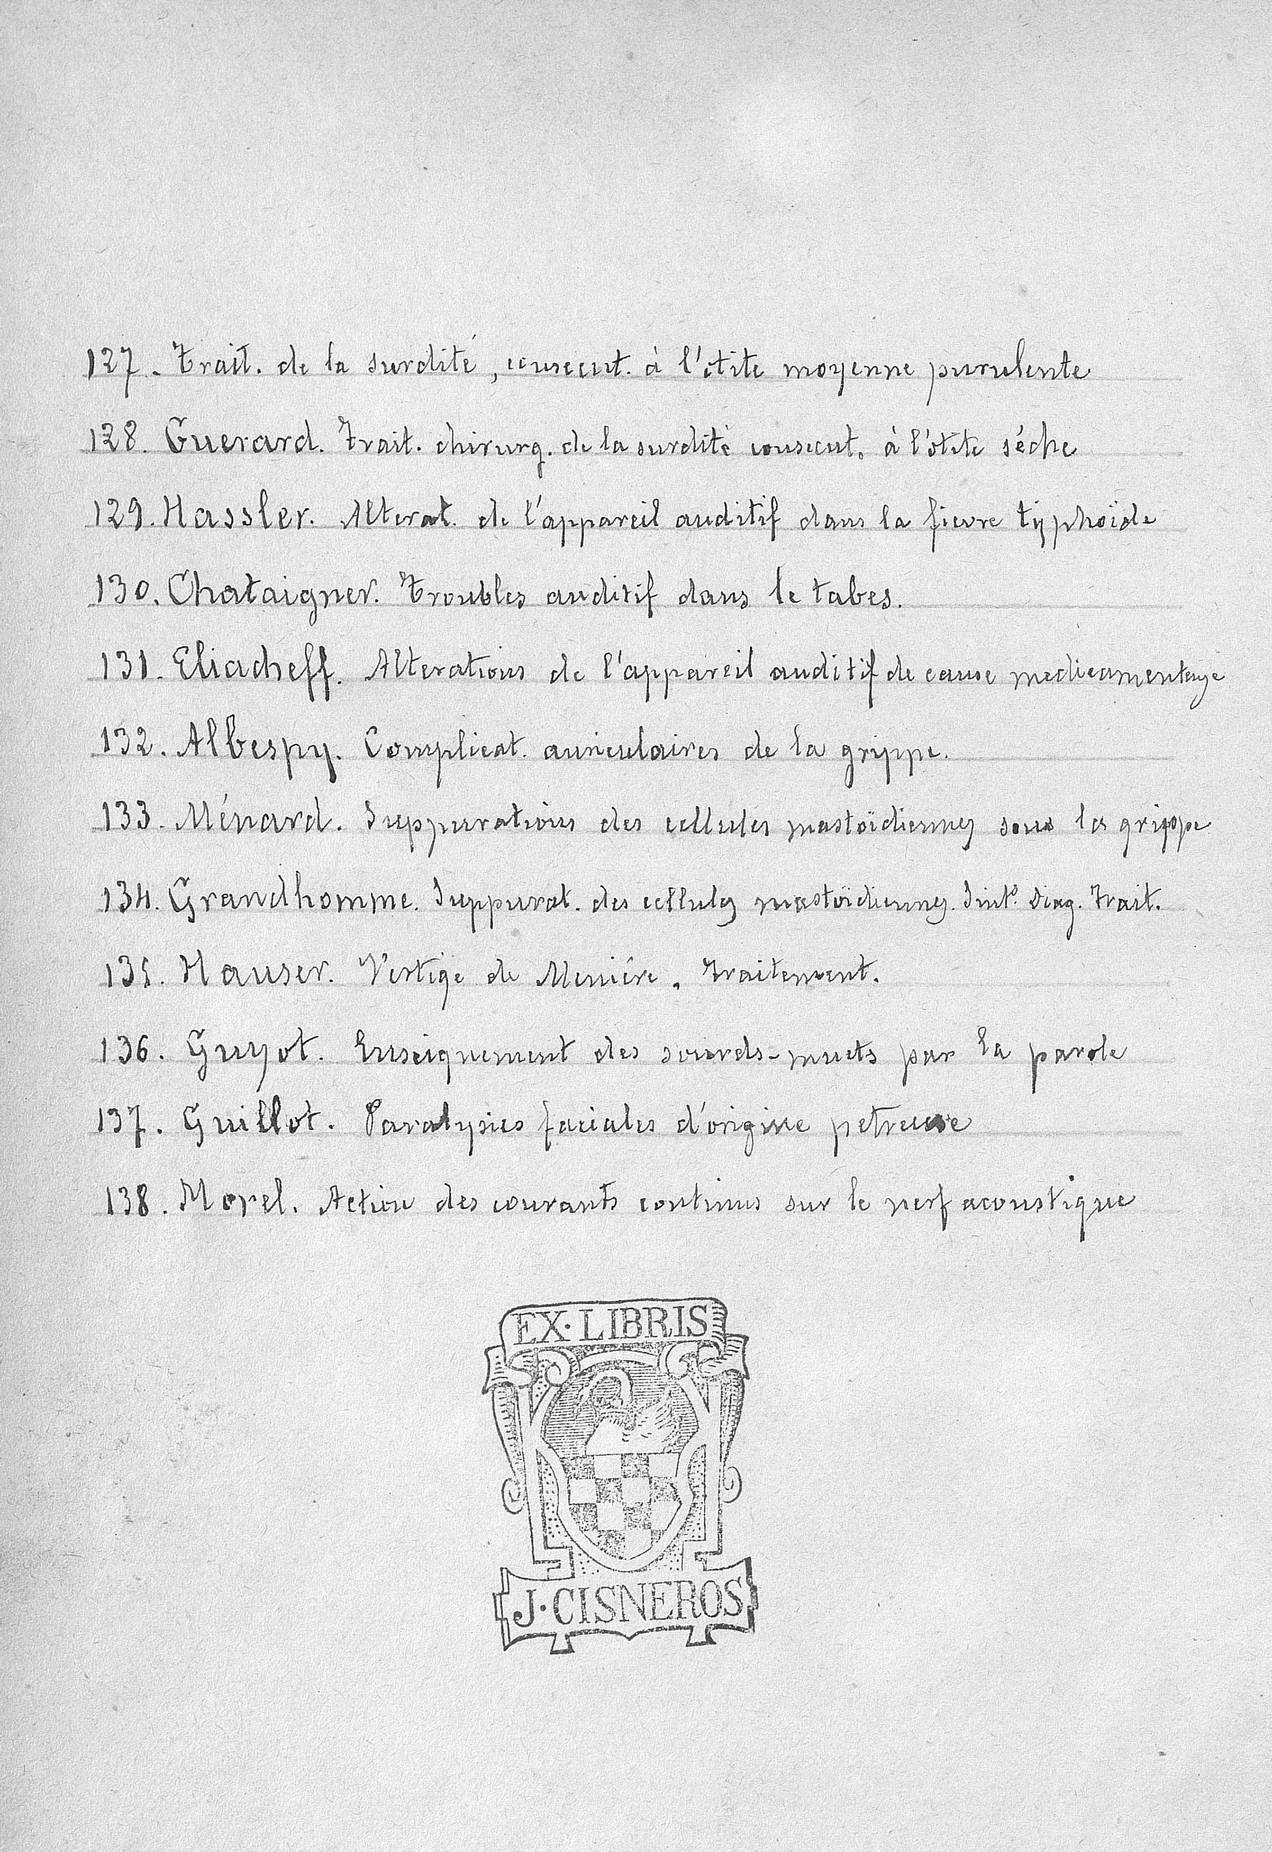 127. Trait. de la surdité, consecut. à l'otite moyenne purulente
128. Guerard. Trait. chirurg. de la surdité consecut. à l'otite séche
129. Hassler. Alterat. de l'appareil auditif dans la fievre typhoïde
130. Chataigner. Troubles auditif dans le tabes.
131. Eliacheff. Alterations de l'appareil auditif de cause medicamenteuse
132. Albespy. Complicat. auriculaires de la grippe.
133. Ménard. Suppurations des cellules mastoïdiennes sous la grippe
134. Grandhomme. Suppurat. des cellules mastoïdiennes. Sint^s. Diag. Trait.
135. Hauser. Vertige de Meniére. Traitement.
136. Guyot. Enseignement des sourds-muets par la parole
137. Guillot. Paralysies faciales d'origine petreuse
138. Morel. Action des courants continus sur le nerf acoustique
EX·LIBRIS
J·CISNEROS